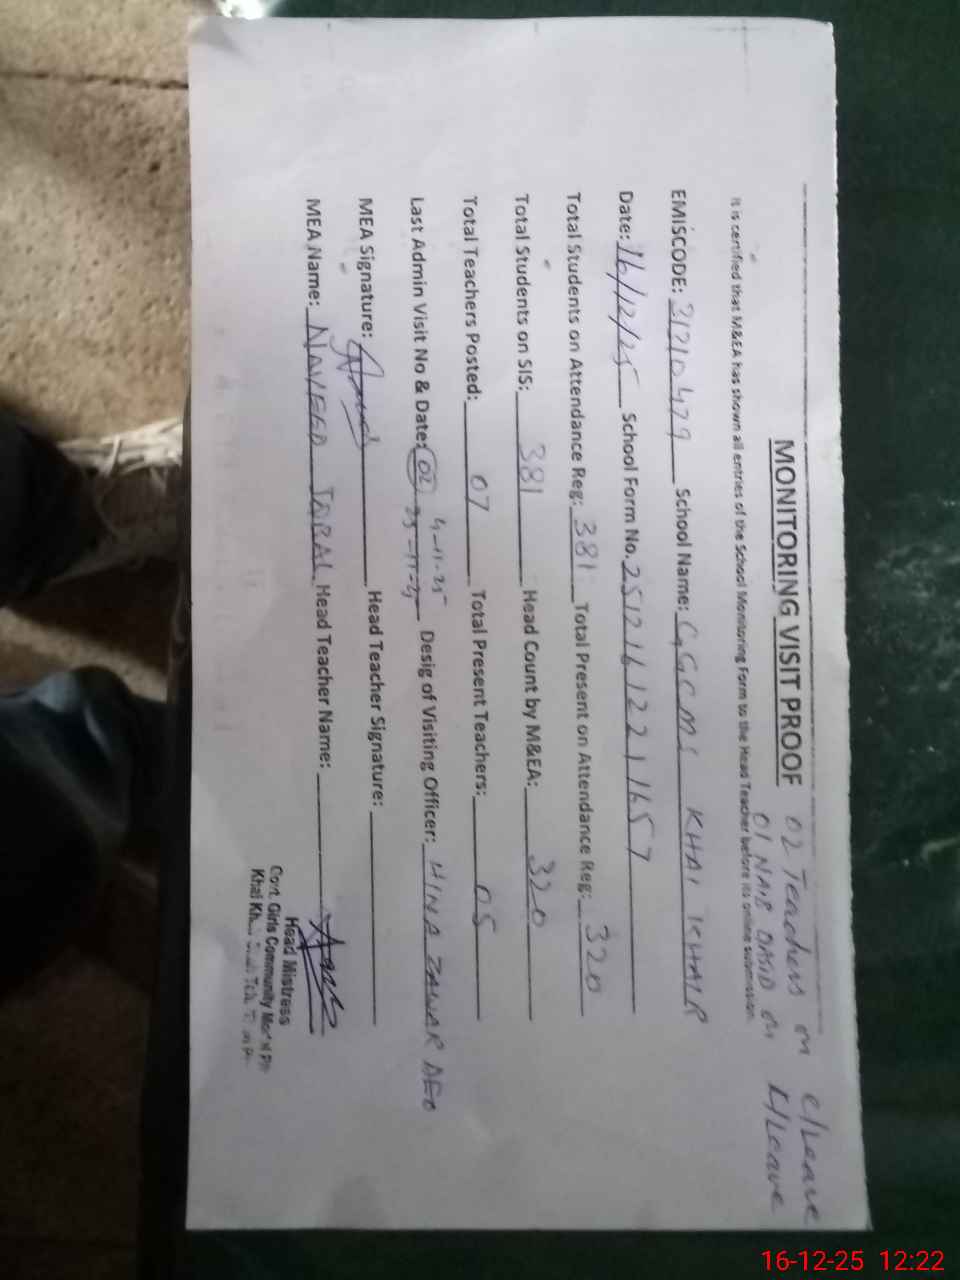 02 Teachers on C/Leave
MONITORING VISIT PROOF 01 NAIB QASID on L/Leave
It is certified that M&EA has shown all entries of the School Monitoring Form to the Head Teacher before its online submission.
EMISCODE: 31210479 School Name: GGCMS KHAI KHAIR
Date: 16/12/25 School Form No. 25121612211657
Total Students on Attendance Reg: 381 Total Present on Attendance Reg: 320
Total Students on SIS: 381 Head Count by M&EA: 320
Total Teachers Posted: 07 Total Present Teachers: 05
4-11-25
Last Admin Visit No & Date: 02 Desig of Visiting Officer: HINA ZAWAR AEO
MEA Signature: Head Teacher Signature:
MEA Name: NAVEED IQBAL Head Teacher Name:
Head Mistress
Govt. Girls Community Model
Khai
16-12-25 12:22